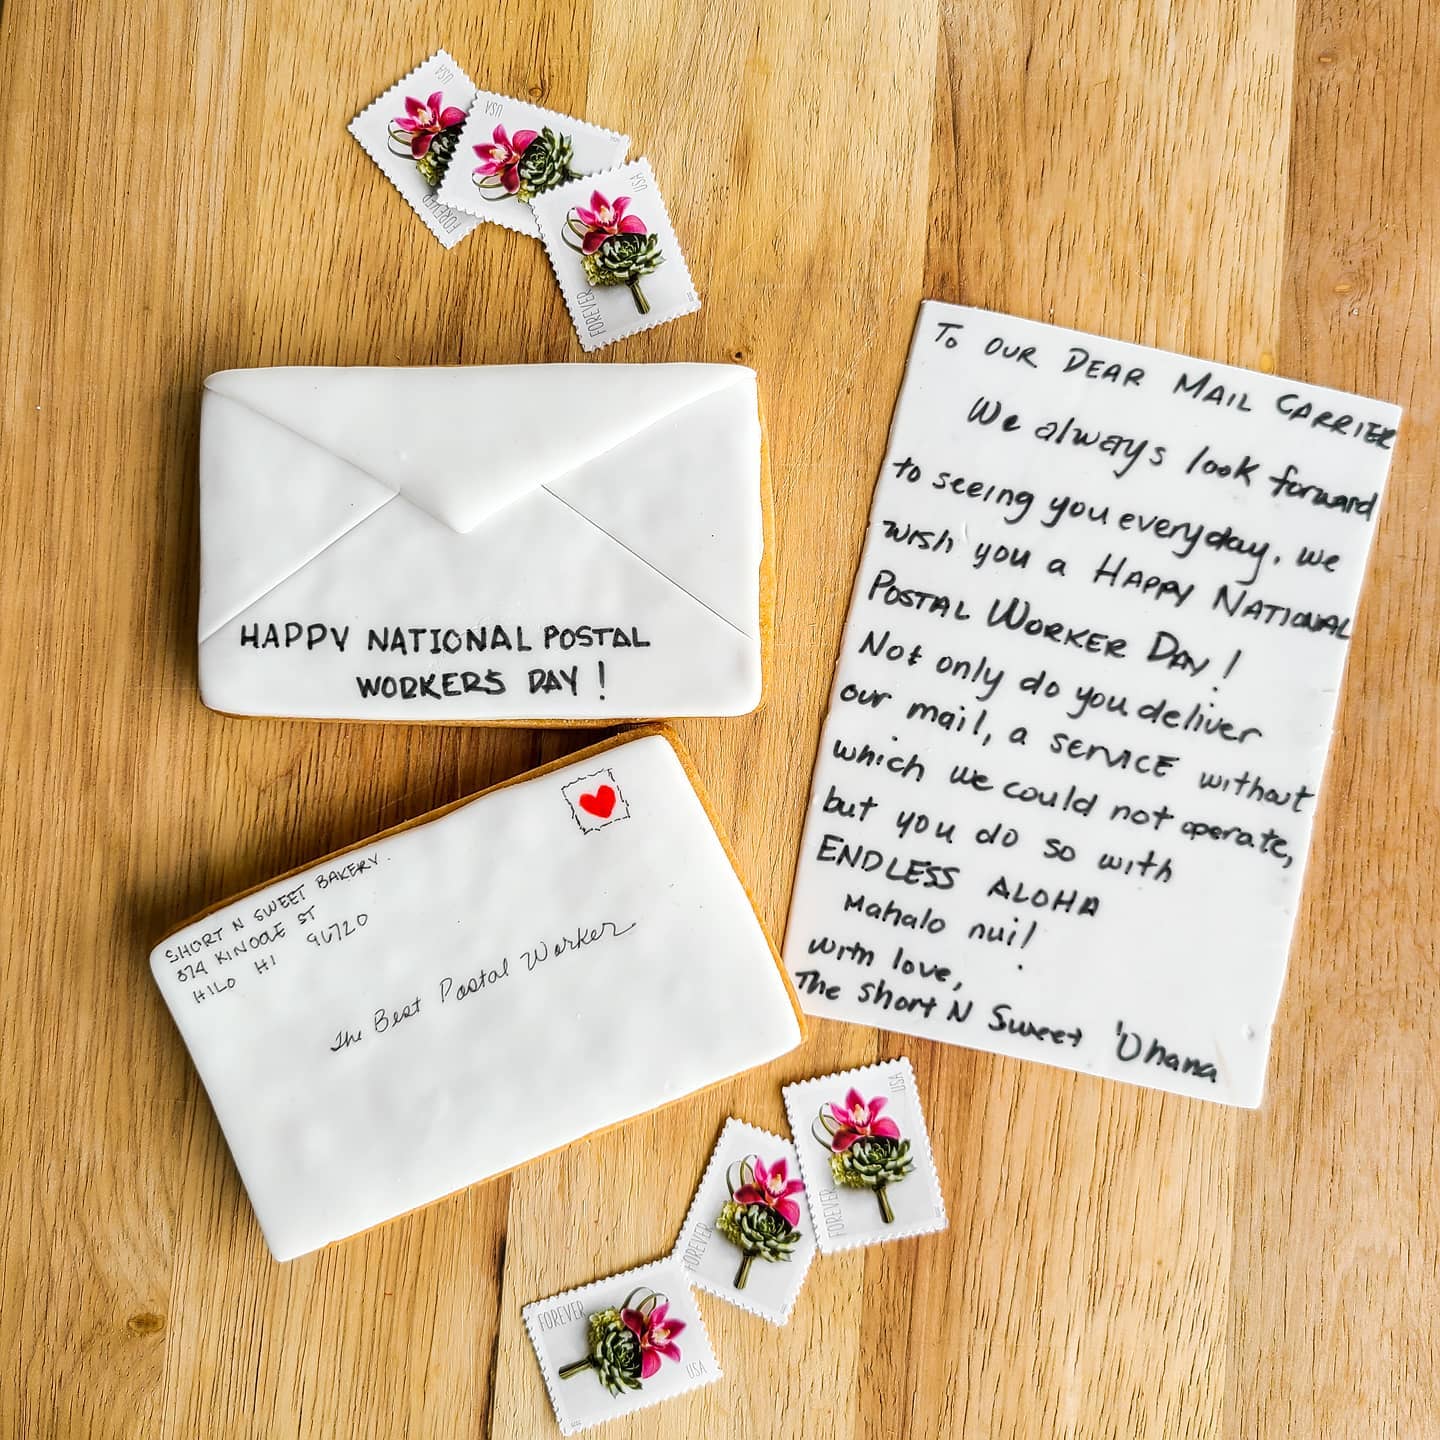 USA
FOREVER
USA
USA
FOREVER
HAPPY NATIONAL POSTAL
WORKERS DAY!
SHORT N SWEET BAKERY.
374 KINOOLE ST
HILO HI 96720
The Best Postal Worker
To OUR DEAR MAIL CARRIER
We always look forward
to seeing you everyday. we
wish you a HAPPY NATIONAL
POSTAL WORKER DAY!
Not only do you deliver
our mail, a service without
which we could not operate,
but you do so with
ENDLESS ALOHA
Mahalo nui!
with love,
The Short N Sweet 'Ohana
USA
FOREVER
FOREVER
FOREVER
USA